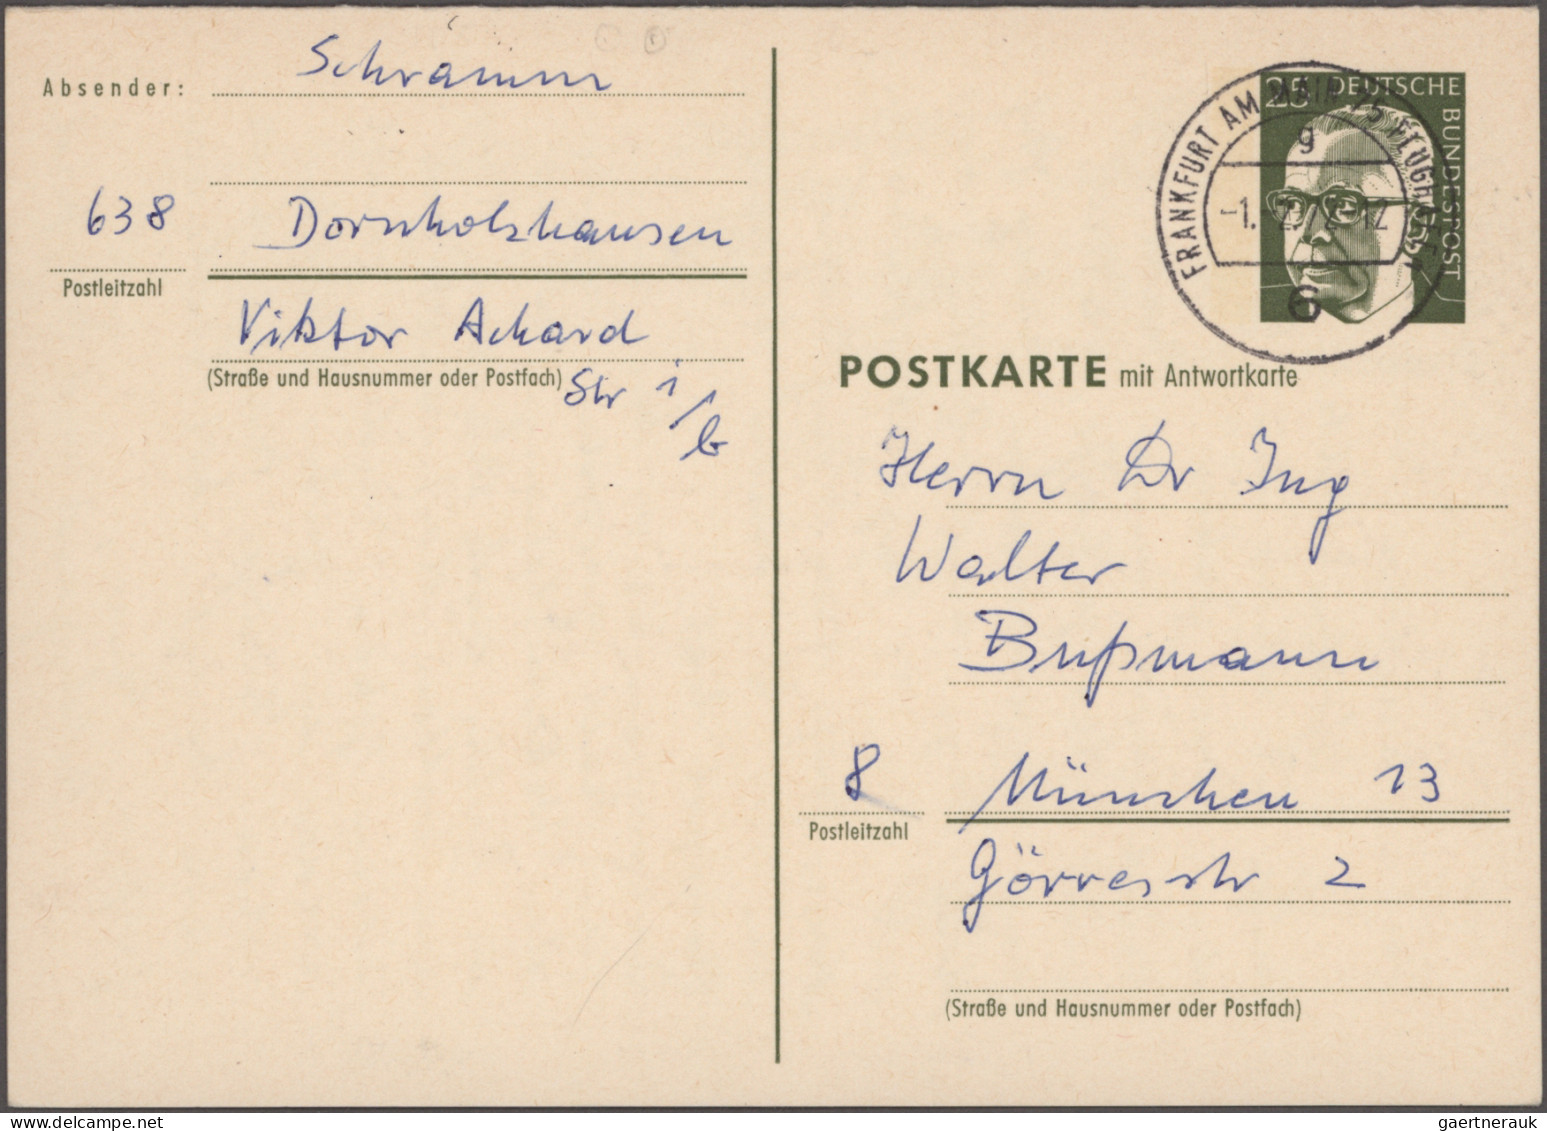 Absender:
Schramm
638 Dornholzhausen
Postleitzahl
Viktor Achard
(Straße und Hausnummer oder Postfach)
Str
25 DEUTSCHE
BUNDESPOST
FRANKFURT AM MAIN 75 FLUGHAFEN
g
-1.
6
POSTKARTE mit Antwortkarte
Herrn Dr Ing
Walter
Bußmann
8 München 13
Postleitzahl
Görresstr 2
(Straße und Hausnummer oder Postfach)
gaertnerauk